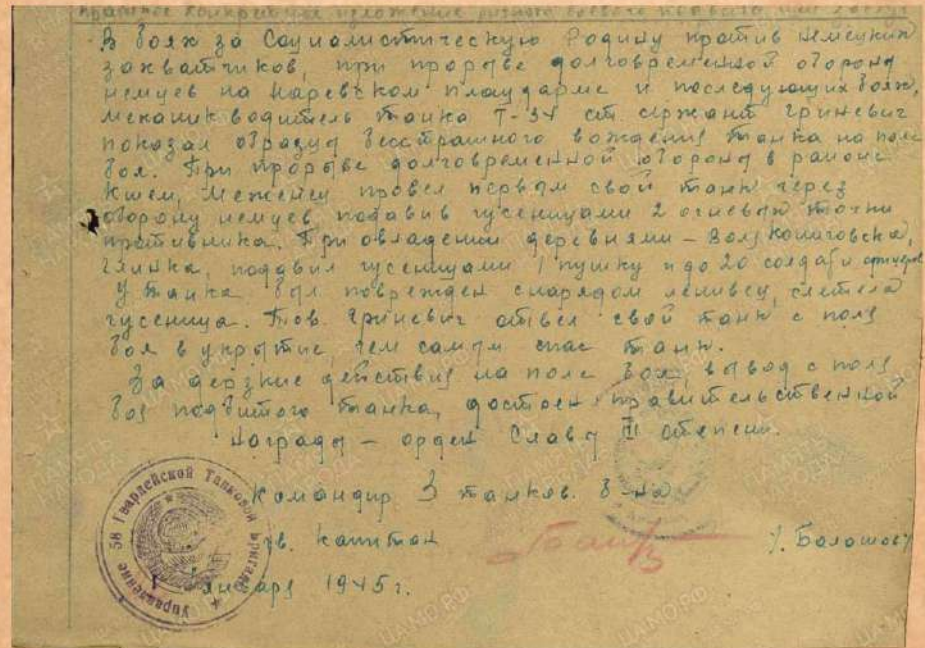 Краткое конкретное изложение личного боевого подвига или заслуг
В боях за Социалистическую Родину против немецких
захватчиков, при прорыве долговременной обороны
немцев на Наревском плацдарме и последующих боях,
механик водитель танка Т-34 ст. сержант Гриневич
показал образцы бесстрашного вождения танка на поле
боя. При прорыве долговременной обороны в районе
провел первым свой танк через
оборону немцев, подавив гусеницами 2 огневые точки
противника. При овладении деревнями –
Глинка, подавил гусеницами 1 пушку и до 20 солдат и офицеров
У танка был поврежден снарядом ленивец, слетела
гусеница. Тов. Гриневич отвел свой танк с поля
боя в укрытие, тем самым спас танк.
За дерзкие действия на поле боя, вывод с поля
боя подбитого танка, достоен правительственной
награды – орден Славы III степени.
Командир 3 танков. б-на
гв. капитан
января 1945 г.
Управление 58 Гвардейской Танковой Бригады
ЦАМО.РФ